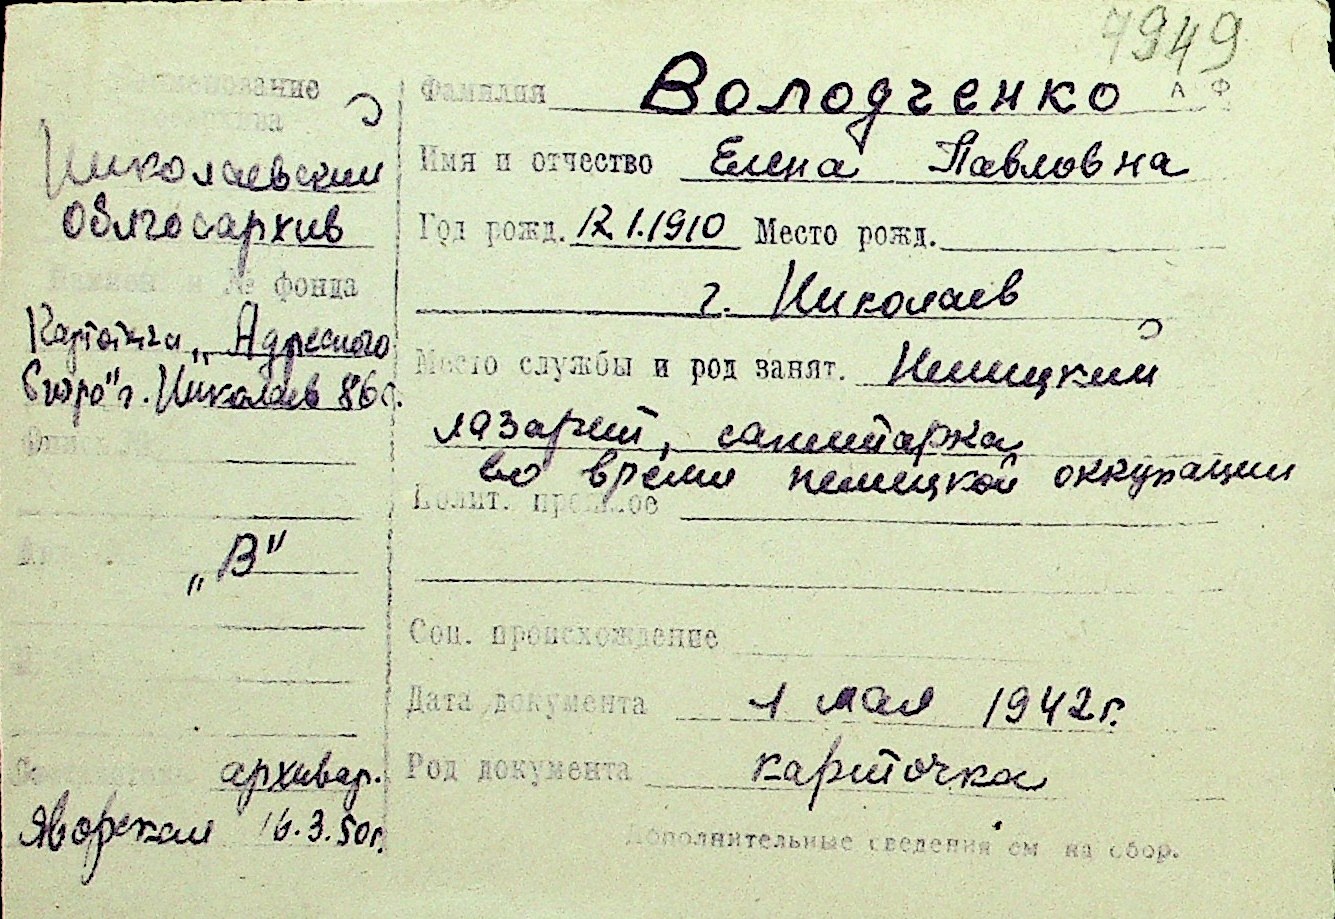 7949
Наименование
архива
Николаевский
облгосархив
Наимен. и № фонда
Картотека „Адресного
бюро" г. Николаев
Опись №
„В"
архивар.
Яворская 16.3.50г.
Фамилия Володченко
А Ф
Имя и отчество Елена Павловна
Год рожд. 12.1.1910 Место рожд.
г. Николаев
Место службы и род занят. Немецкий
лазарет, санитарка
во время немецкой оккупации
Полит. прошлое
Соц. происхождение
Дата документа 1 мая 1942г.
Род документа карточка
Дополнительные сведения см на обор.